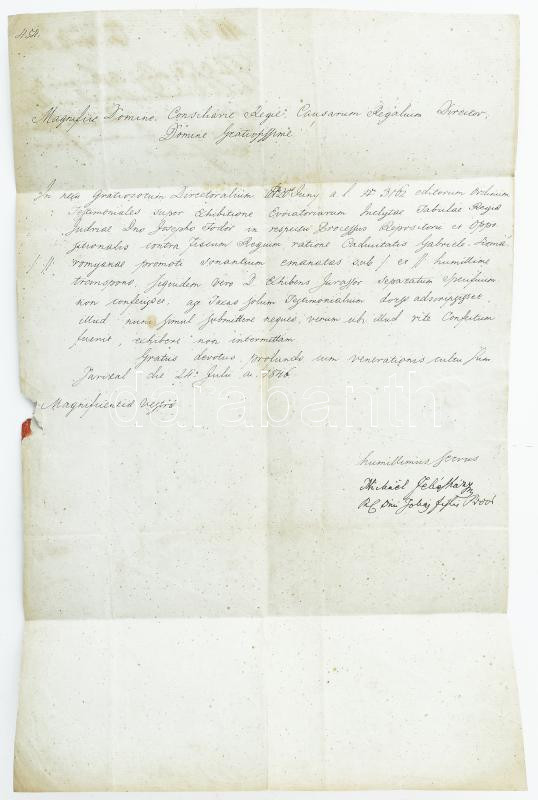 454.
Magnifice Domine, Consiliarie Regie, Causarum Regalium Director,
Domine Gratiosissime
In nexu Gratiosorum Directoralium Juny a. l. Nr 3162 editorum Ordinum
Testimoniales super Exhibitione Inclytae Tabulae Regiae
Judriae Dno Josepho Fodor in respectu Processus Repositorii et Oppo
sitionalis contra Fiscum Regium ratione Caducitatis Gabriele
promoti sonantium emanatas sub /. et //. humillime
transpono, siquidem vero D. Exhibens Jurassor separatum specificum
non confecisset, ac Taxas solum Testimonialium dorso adscripsisset,
illud nunc simul submittere nequeo, verum ubi illud rite Confectum
fuerit, exhibere non intermittam.
Gratiis devotus, profundo cum venerationis cultu sum
die 24a July a. 1846
Magnificentiae Vestrae
humillimus servus
Michael
darabanth